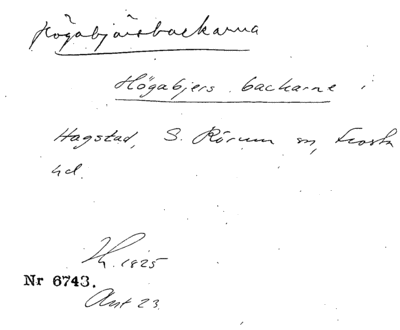 Högabjärsbackarna
Högabjers backarne i
Hagstad, S. Rörum sn, Frosta
hd.
1825
Nr 6743.
Akt 23